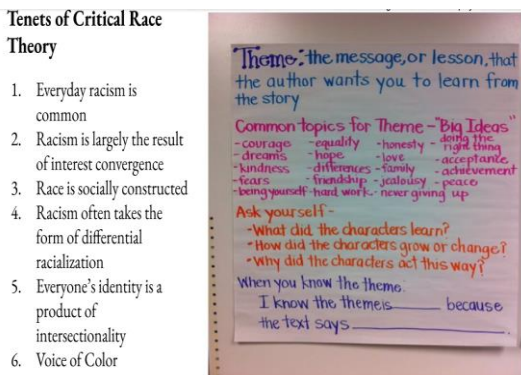 Tenets of Critical Race
Theory
1. Everyday racism is
common
2. Racism is largely the result
of interest convergence
3. Race is socially constructed
4. Racism often takes the
form of differential
racialization
5. Everyone's identity is a
product of
intersectionality
6. Voice of Color
Theme: the message, or lesson, that
the author wants you to learn from
the story
Common topics for Theme - "Big Ideas"
- courage - equality - honesty - doing the right thing
- dreams - hope - love - acceptance
- kindness - differences - family - achievement
- fears - friendship - jealousy - peace
- being yourself - hard work - never giving up
Ask yourself -
- What did the characters learn?
- How did the characters grow or change?
- Why did the characters act this way?
When you know the theme.
I know the theme is_____ because
the text says_____.